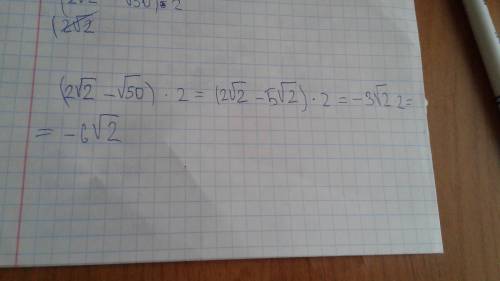 (2√2 - √50) · 2
(2√2
(2√2 - √50) · 2 = (2√2 - 5√2) · 2 = -3√2 2 =
= -6√2